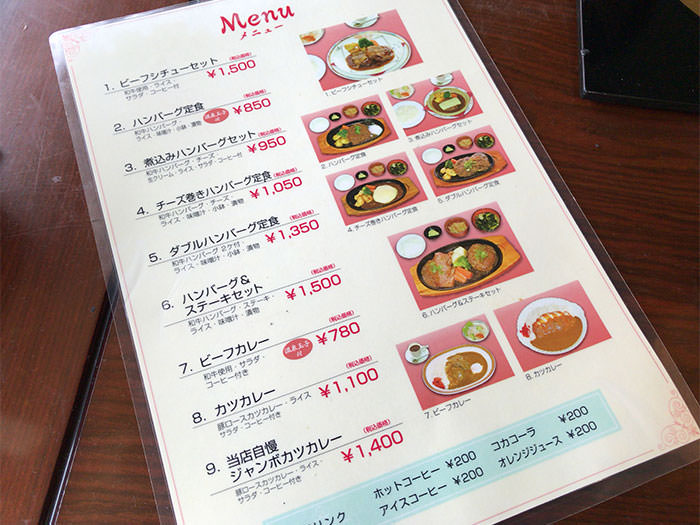 Menu
メニュー
1. ビーフシチューセット (税込価格) ¥1,500
和牛使用・ライス・
サラダ・コーヒー付
2. ハンバーグ定食 温泉玉子付 (税込価格) ¥850
和牛ハンバーグ・
ライス・味噌汁・小鉢・漬物
3. 煮込みハンバーグセット (税込価格) ¥950
和牛ハンバーグ・チーズ
生クリーム・ライス・サラダ・コーヒー付
4. チーズ巻きハンバーグ定食 (税込価格) ¥1,050
和牛ハンバーグ・チーズ・
ライス・味噌汁・小鉢・漬物
5. ダブルハンバーグ定食 (税込価格) ¥1,350
和牛ハンバーグ2ケ付・
ライス・味噌汁・小鉢・漬物
6. ハンバーグ&
ステーキセット (税込価格) ¥1,500
和牛ハンバーグ・ステーキ・
ライス・味噌汁・漬物
7. ビーフカレー 温泉玉子付 (税込価格) ¥780
和牛使用・サラダ・
コーヒー付き
8. カツカレー (税込価格) ¥1,100
豚ロースカツカレー・ライス・
サラダ・コーヒー付き
9. 当店自慢
ジャンボカツカレー (税込価格) ¥1,400
豚ロースカツカレー・ライス・
サラダ・コーヒー付き
1. ビーフシチューセット
2. ハンバーグ定食
3. 煮込みハンバーグセット
4. チーズ巻きハンバーグ定食
5. ダブルハンバーグ定食
6. ハンバーグ&ステーキセット
7. ビーフカレー
8. カツカレー
リンク
ホットコーヒー ¥200
アイスコーヒー ¥200
コカコーラ ¥200
オレンジジュース ¥200